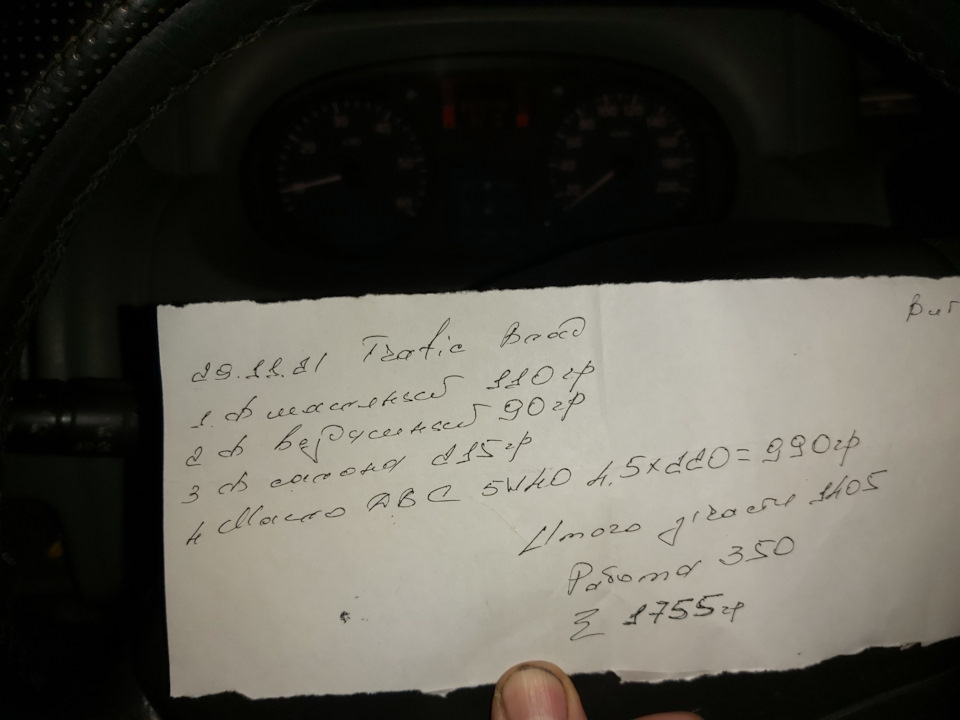 29.11.21 Trafic Влад
1. ф масляный 110 гр
2 ф воздушный 90 гр
3 ф салона 215 гр
4 Масло ABC 5W40 4,5x220=990 гр
Итого з/части 1405
Работа 350
Σ 1755 гр